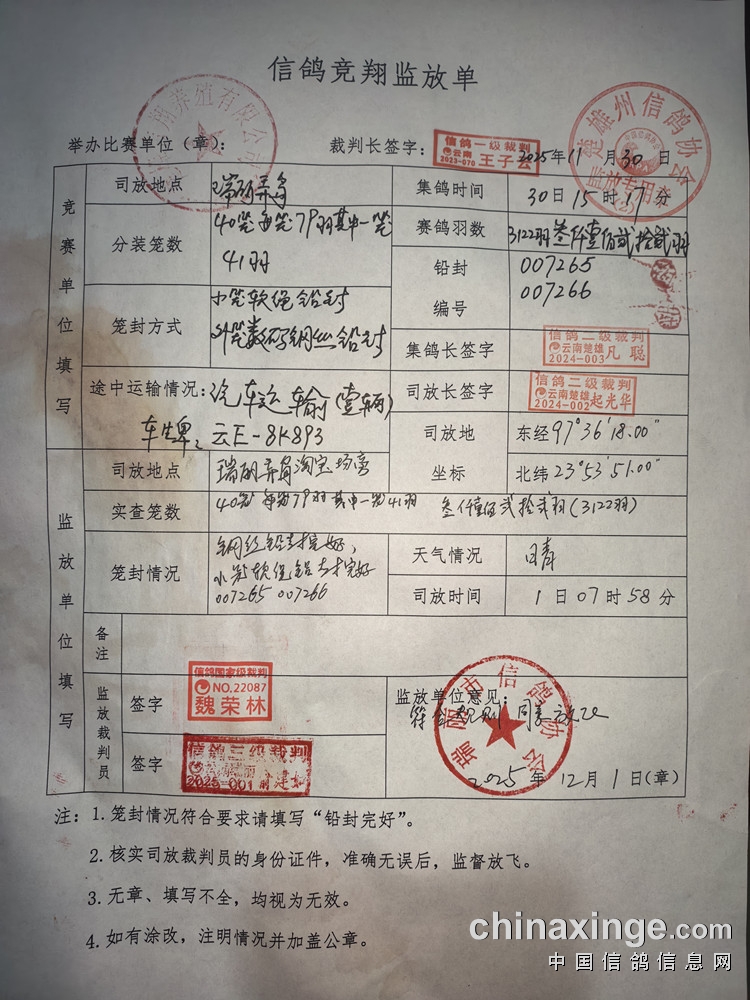 信鸽竞翔监放单
养殖有限公司
楚雄州信鸽协会
监放专用章
(2)
举办比赛单位（章）：
裁判长签字：
信鸽一级裁判
云南
2023-070 王子云
2025年11月30日
竞赛单位填写
司放地点
瑞丽弄岛
集鸽时间
30日15时17分
分装笼数
40笼每笼79羽其中一笼
41羽
赛鸽羽数
3122羽叁仟壹佰贰拾贰羽
铅封
编号
007265
007266
笼封方式
小笼软绳铅封
外笼数码钢丝铅封
集鸽长签字
信鸽二级裁判
云南楚雄
2024-003 凡聪
途中运输情况：汽车运输（壹辆）
车牌：云E-8K893
司放长签字
信鸽二级裁判
云南楚雄
2024-002 起光华
司放地
坐标
东经97°36′18.00″
北纬23°53′51.00″
监放单位填写
司放地点
瑞丽弄岛淘宝场旁
实查笼数
40笼 每笼79羽其中一笼41羽 叁仟壹佰贰拾贰羽(3122羽)
笼封情况
钢丝铅封完好，
小笼软绳铅封完好
007265 007266
天气情况
晴
司放时间
1日07时58分
备注
监放裁判员
签字
信鸽国家级裁判
NO.22087
魏荣林
签字
信鸽三级裁判
2025-001
监放单位意见：
符合规则 同意放飞
瑞丽市信鸽协会
2025年12月1日(章)
注：1.笼封情况符合要求请填写“铅封完好”。
2.核实司放裁判员的身份证件，准确无误后，监督放飞。
3.无章、填写不全，均视为无效。
4.如有涂改，注明情况并加盖公章。
chinaxinge.com
中国信鸽信息网